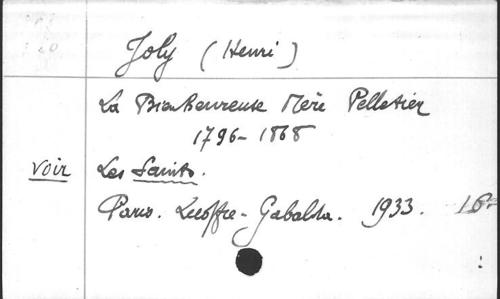 Joly (Henri)
La Bienheureuse Mère Pelletier
1796-1868
voir Les Saints.
Paris. Lecoffre-Gabalda. 1933. 16°